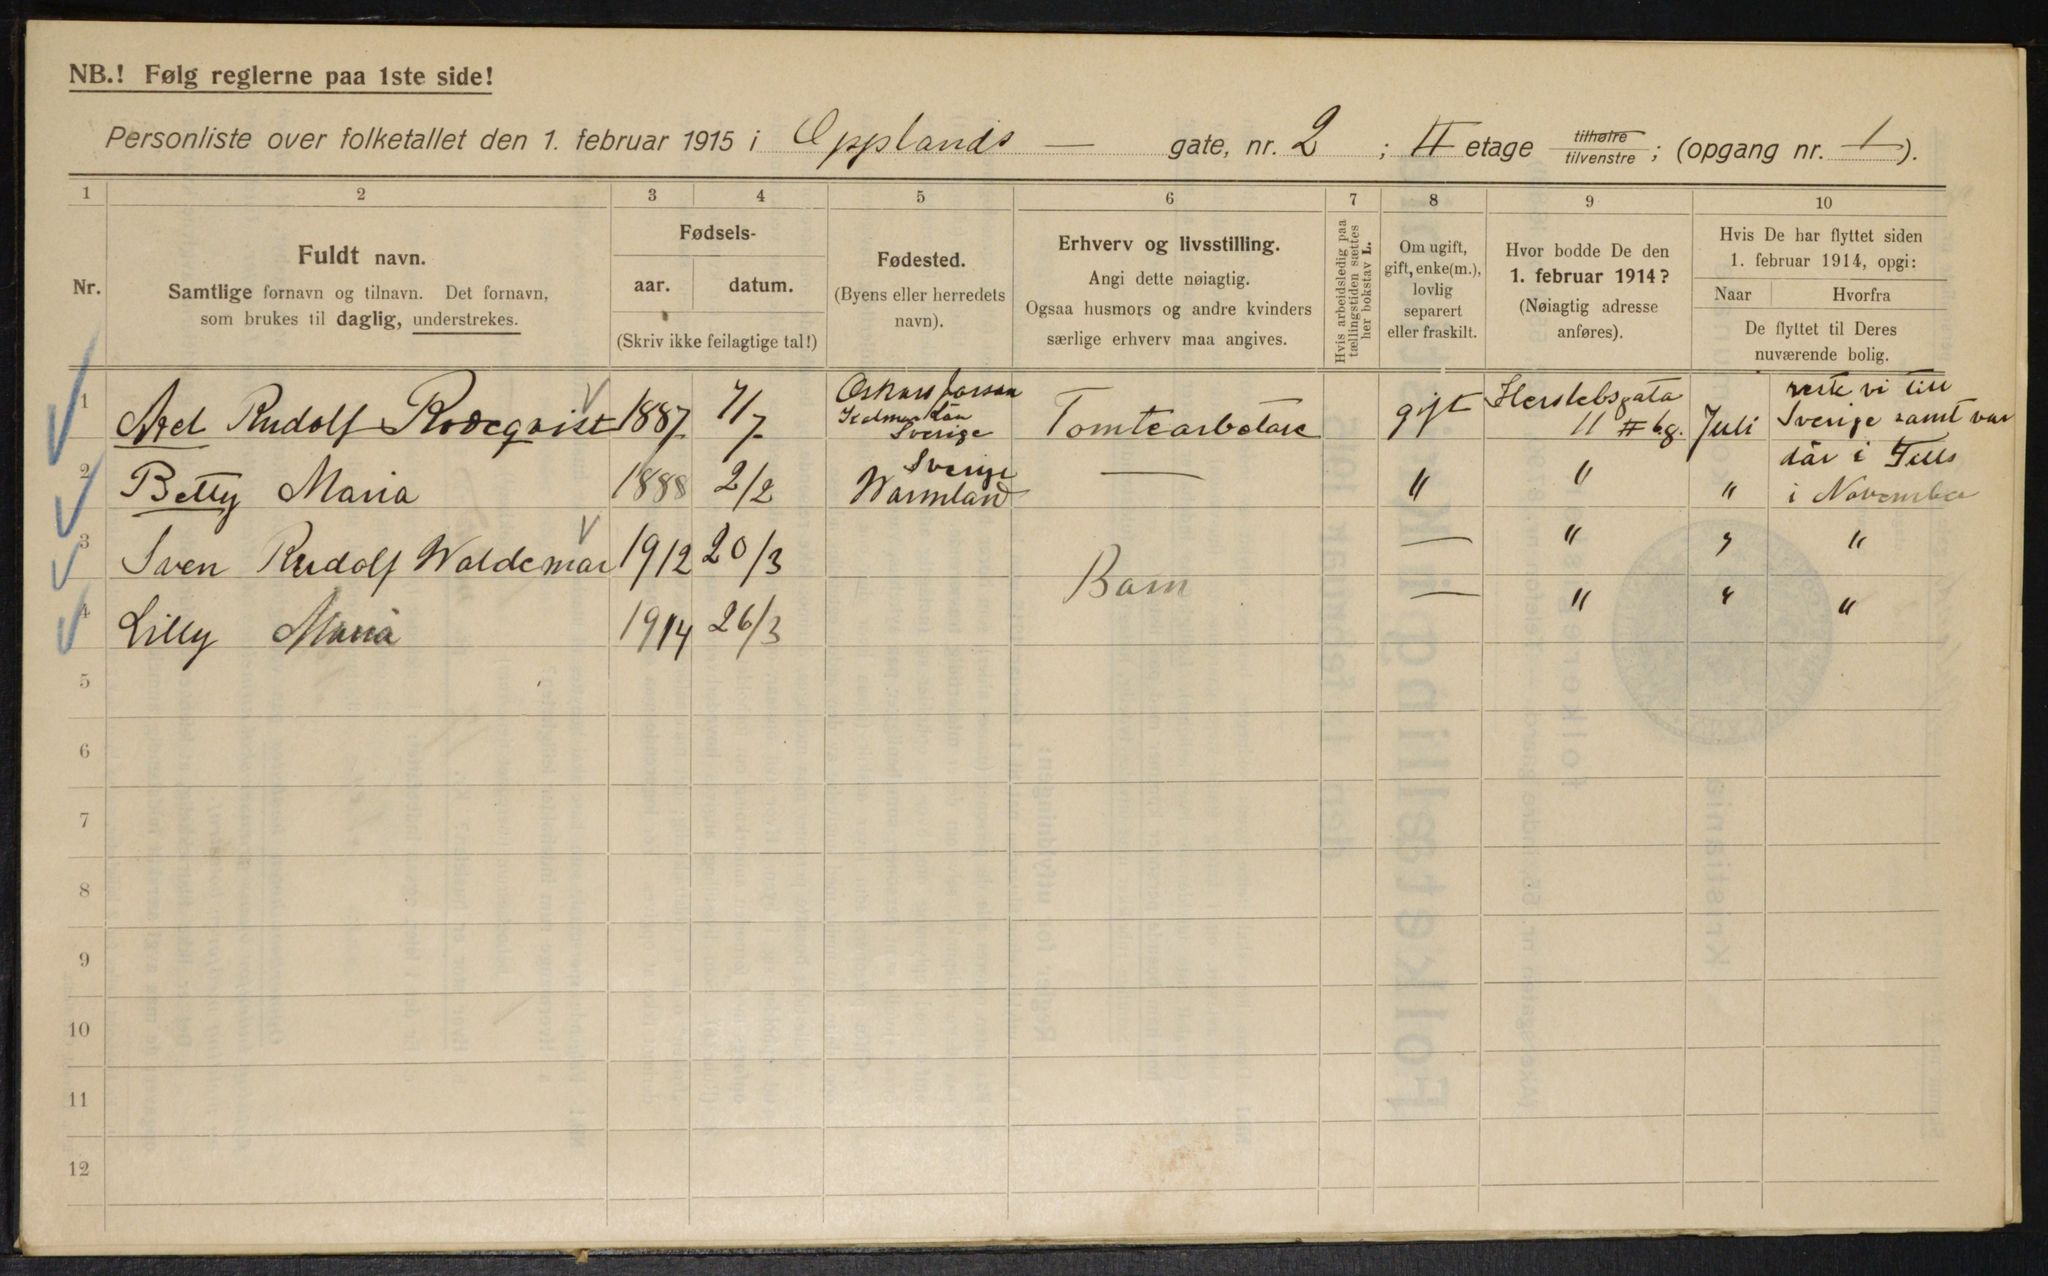 NB.! Følg reglerne paa 1ste side!
Personliste over folketallet den 1. februar 1915 i Opplands — gate, nr. 2 ; II etage tilhøire tilvenstre ; (opgang nr. 1 ).
1 2 3 4 5 6 7 8 9 10
Nr.
Fuldt navn.
Samtlige fornavn og tilnavn. Det fornavn,
som brukes til daglig, understrekes.
Fødsels-
aar. datum.
(Skriv ikke feilagtige tal!)
Fødested.
(Byens eller herredets
navn).
Erhverv og livsstilling.
Angi dette nøiagtig.
Ogsaa husmors og andre kvinders
særlige erhverv maa angives.
Hvis arbeidsledig paa
tællingstiden sættes
her bokstav L.
Om ugift,
gift, enke(m.),
lovlig
separert
eller fraskilt.
Hvor bodde De den
1. februar 1914?
(Nøiagtig adresse
anføres).
Hvis De har flyttet siden
1. februar 1914, opgi:
Naar Hvorfra
De flyttet til Deres
nuværende bolig.
1 Axel Rudolf 1887 7/7 Sverige Tomtearbetare gift Herslebsgata 11 II bg. Juli reste vi till
Sverige samt var
där i
2 Betty Maria 1888 2/2 Sverige Warmland — " " " i November
3 Sven Rudolf Waldemar 1912 20/3 — " " "
Barn
4 Lilly Maria 1914 26/3 — " " "
5
6
7
8
9
10
11
12